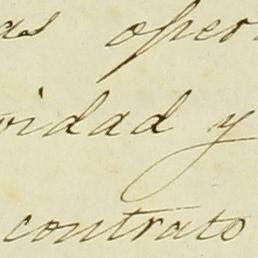 as oper
vidad y
contrato